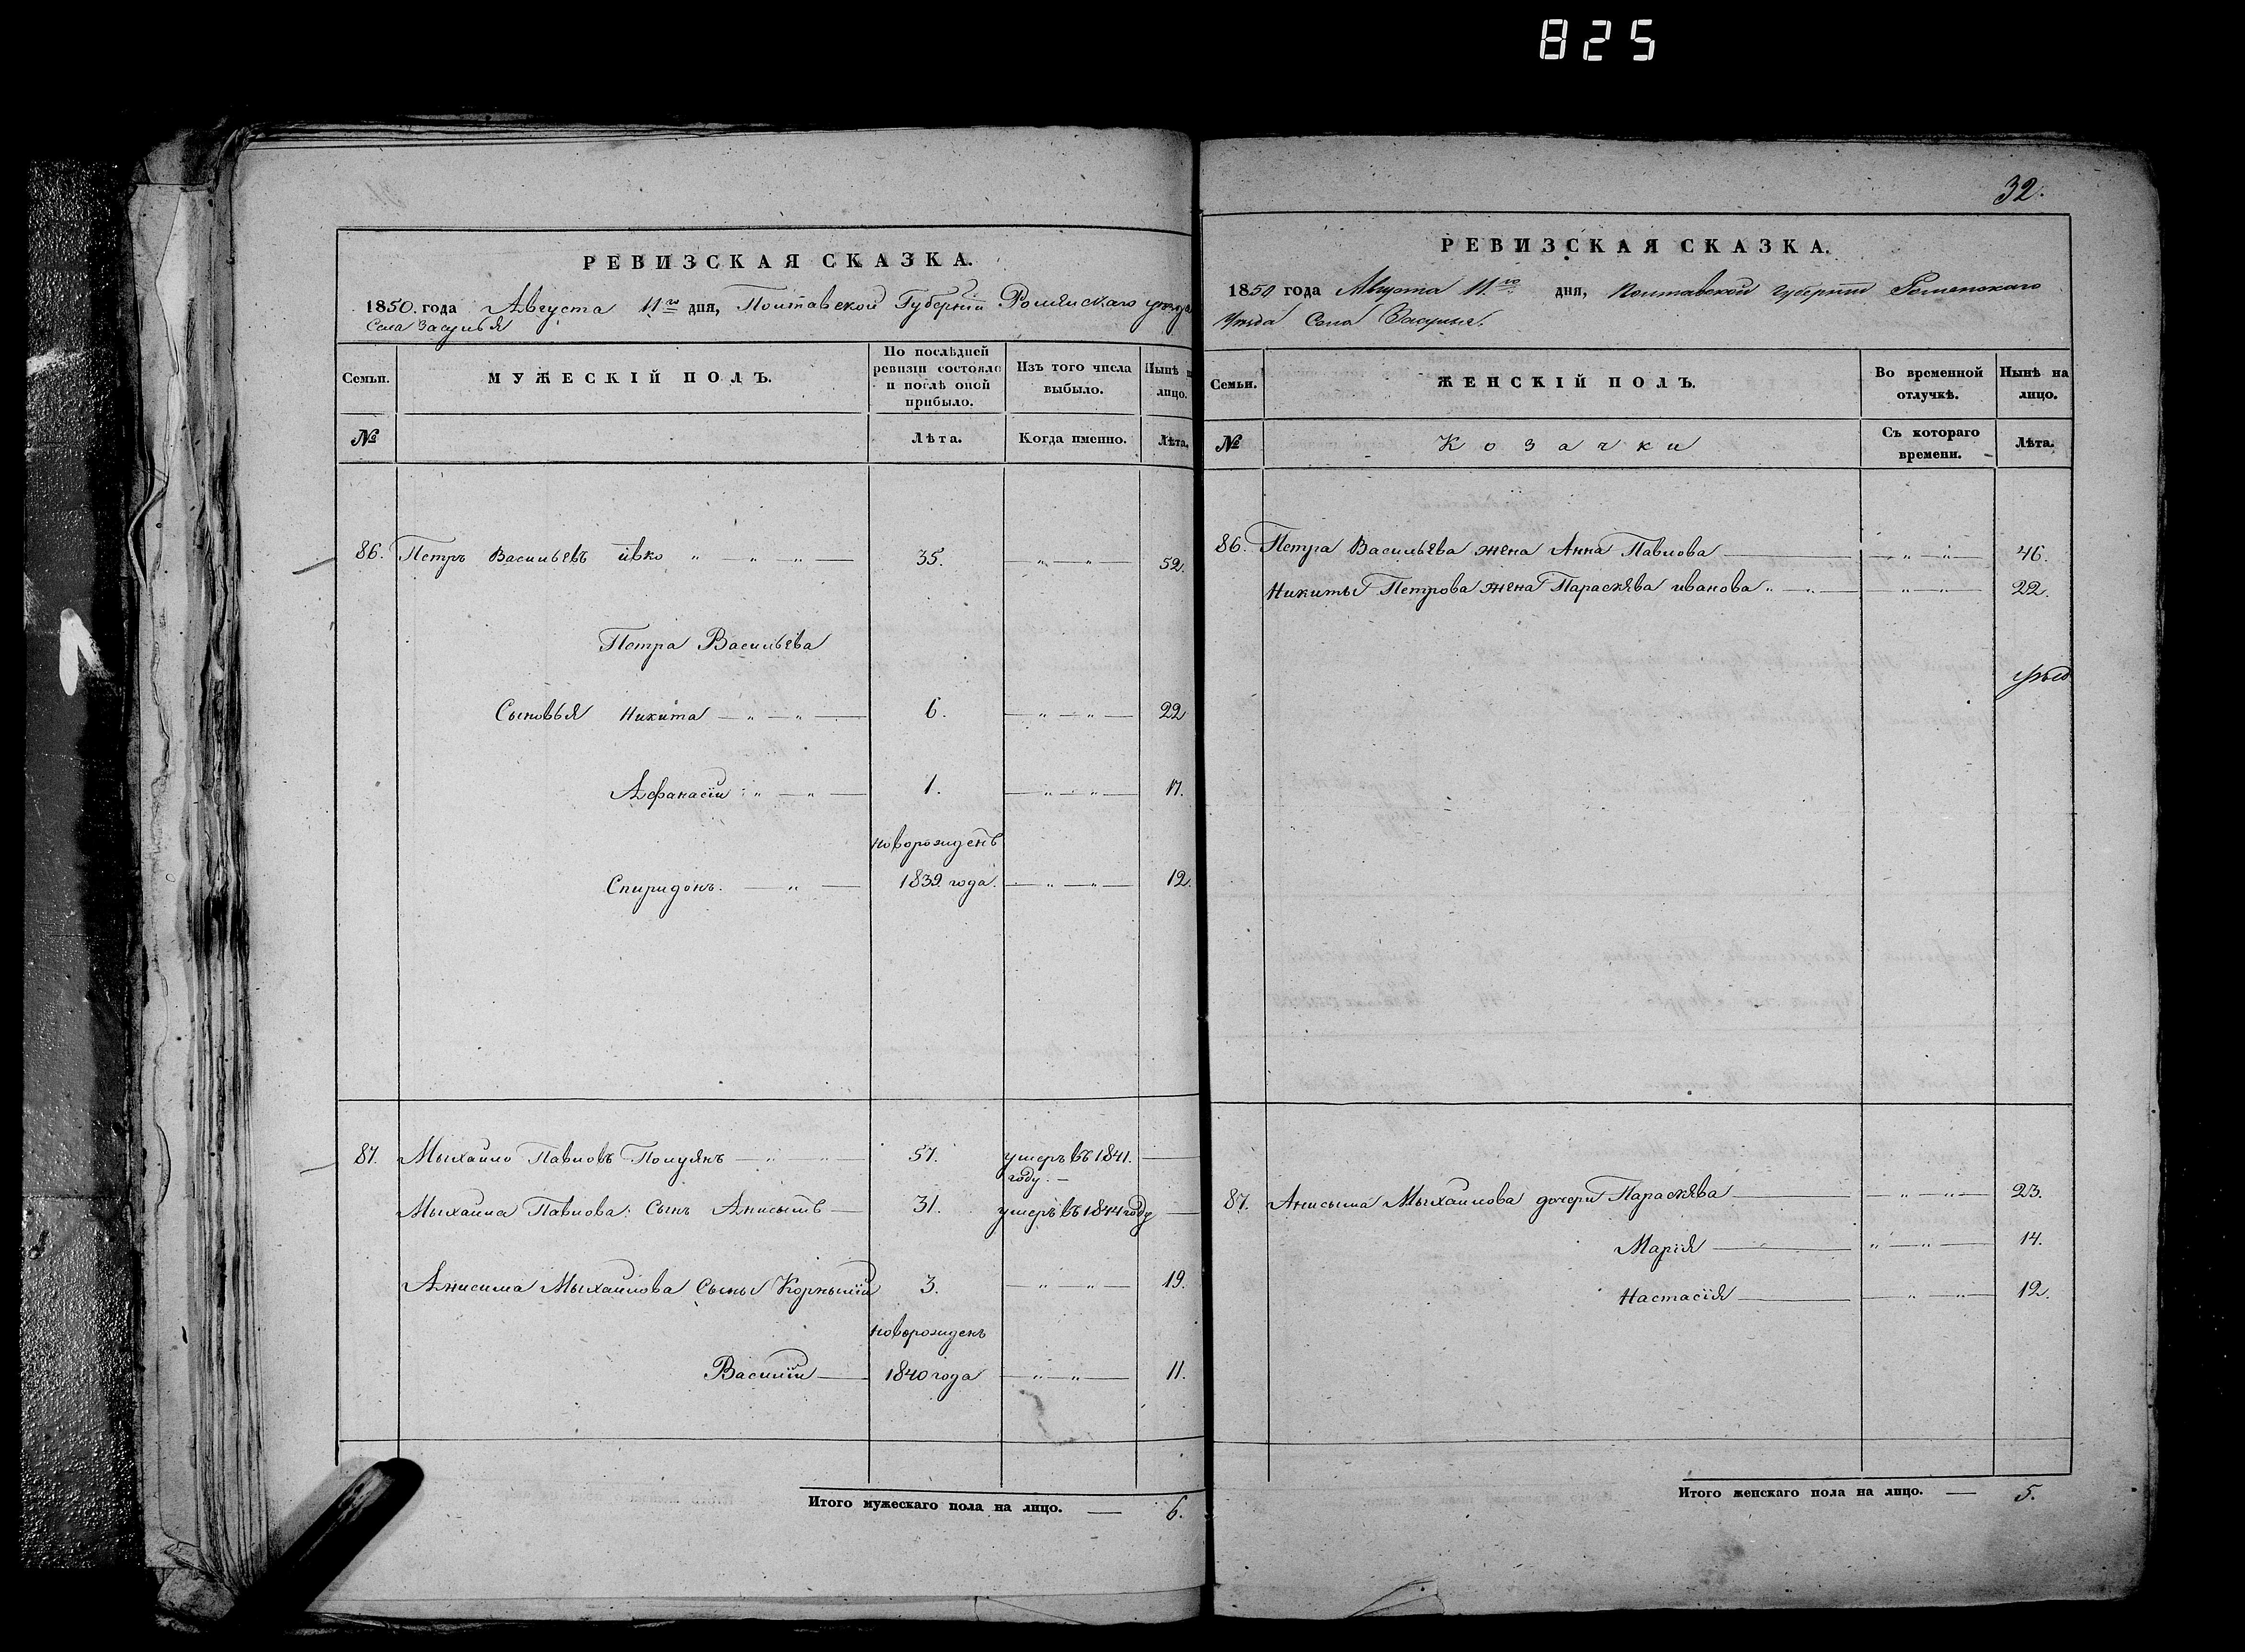 825
РЕВИЗСКАЯ СКАЗКА.
1850. года Августа 11го дня, Полтавской Губерніи Роменскаго уезда
Села Засулья
Семьи.
МУЖЕСКІЙ ПОЛЪ.
По послѣдней ревизіи состояло и послѣ оной прибыло.
Изъ того числа выбыло.
Нынѣ н лицо.
№
Лѣта.
Когда именно.
Лѣта.
86. Петръ Васильевъ Ивко 35. 52.
Петра Васильева
Сыновья Никита 6. 22
Афанасій 1. 17.
новорожденъ
Спиридонъ. 1839 года. 12.
87. Мыхайло Павловъ Полуянъ 57. умеръ въ 1841.
году.
Мыхайла Павлова. Сынъ Анисымъ 31. умеръ въ 1844 году
Анисима Мыхайлова Сыны Корнылій 3. 19.
новорожденъ
Василій 1840 года 11.
Итого мужескаго пола на лицо. 6.
32.
РЕВИЗСКАЯ СКАЗКА.
1850 года Августа 11.го дня, Полтавской губерніи Роменскаго
Уезда Села Засулья.
Семьи.
ЖЕНСКІЙ ПОЛЪ.
Во временной отлучкѣ.
Нынѣ на лицо.
№
Козачки
Съ котораго времени.
Лѣта.
86. Петра Васильева жена Анна Павлова 46.
Никиты Петрова жена Параскева иванова 22.
87. Анисыма Мыхайлова дочери Параскева 23.
Марія 14.
Настасія 12.
Итого женскаго пола на лицо. 5.